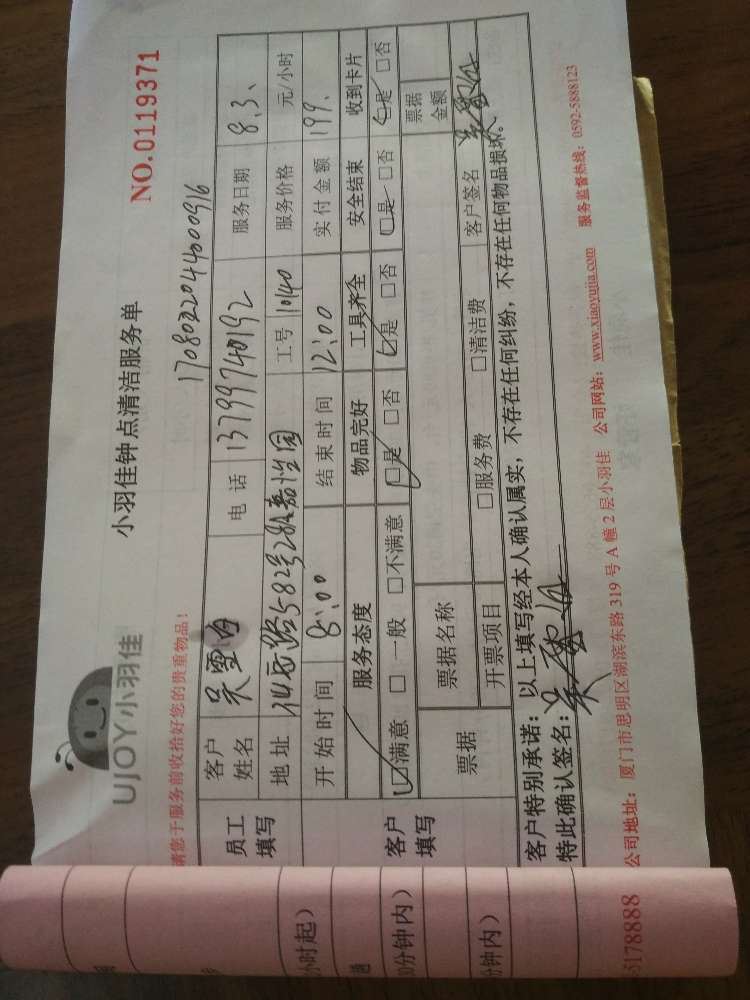 UJOY小羽佳
小羽佳钟点清洁服务单
NO.0119371
请您于服务前收拾好您的贵重物品!
1708022044000916
员工填写
客户姓名 吴雪 电话 13799740192 服务日期 8.3、
地址 58号 嘉怡园 工号 10140 服务价格 元/小时
开始时间 8:00 结束时间 12:00 实付金额 199.
客户填写
服务态度 物品完好 工具齐全 安全结束 收到卡片
□满意 □一般 □不满意 □是 □否 □是 □否 □是 □否 □是 □否
票据 票据名称 票据金额
开票项目 □服务费 □清洁费 客户签名 吴雪
客户特别承诺:以上填写经本人确认属实,不存在任何纠纷,不存在任何物品损坏。
特此确认签名: 吴雪
公司地址:厦门市思明区湖滨东路319号A幢2层小羽佳 公司网站:www.xiaoyujia.com 服务监督热线:0592-5888123
小时起)
0分钟内)
分钟内)
5178888